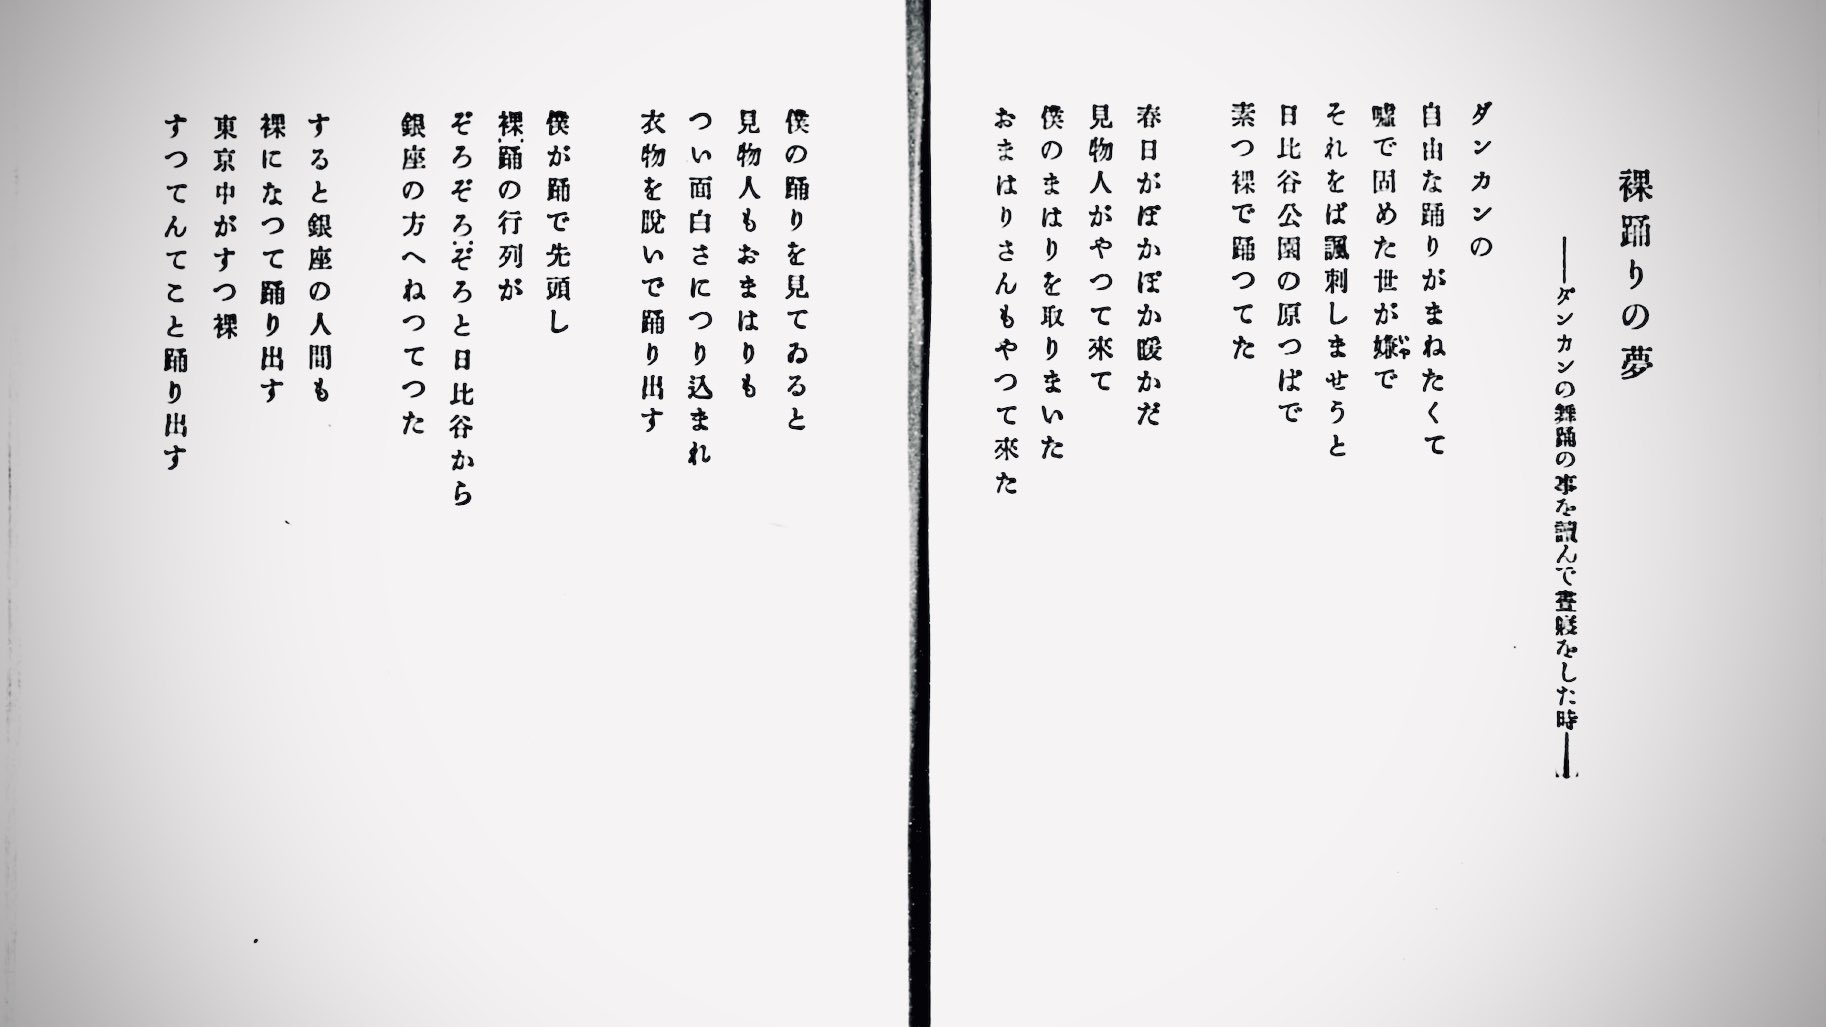 裸踊りの夢
――ダンカンの舞踊の事を訊んで晝寢をした時――
ダンカンの
自由な踊りがまねたくて
嘘で固めた世が嫌で
いや
それをば諷刺しませうと
日比谷公園の原つぱで
素つ裸で踊つてた
春日がぽかぽか暖かだ
見物人がやつて來て
僕のまはりを取りまいた
おまはりさんもやつて來た
僕の踊りを見てゐると
見物人もおまはりも
つい面白さにつり込まれ
衣物を脱いで踊り出す
僕が踊で先頭し
裸踊の行列が
ぞろぞろぞろと日比谷から
銀座の方へねつてつた
すると銀座の人間も
裸になつて踊り出す
東京中がすつ裸
すつてんてこと踊り出す